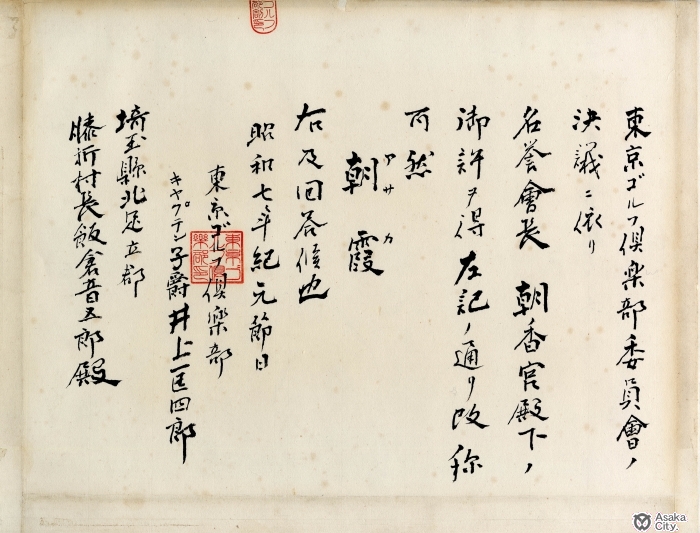 東京ゴルフ倶楽部委員會ノ
決議ニ依リ
名誉會長 朝香宮殿下ノ
御許ヲ得左記ノ通リ改称
可然
朝霞
アサカ
右及回答候也
昭和七年紀元節日
東京ゴルフ倶楽部
キャプテン子爵井上匡四郎
埼玉縣北足立郡
膝折村長飯倉音五郎殿
Asaka
City.